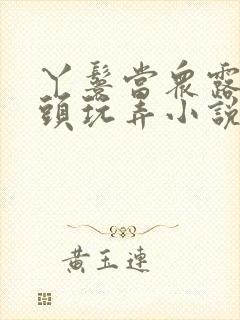 丫鬟當眾露
頭玩弄小說
黃玉連